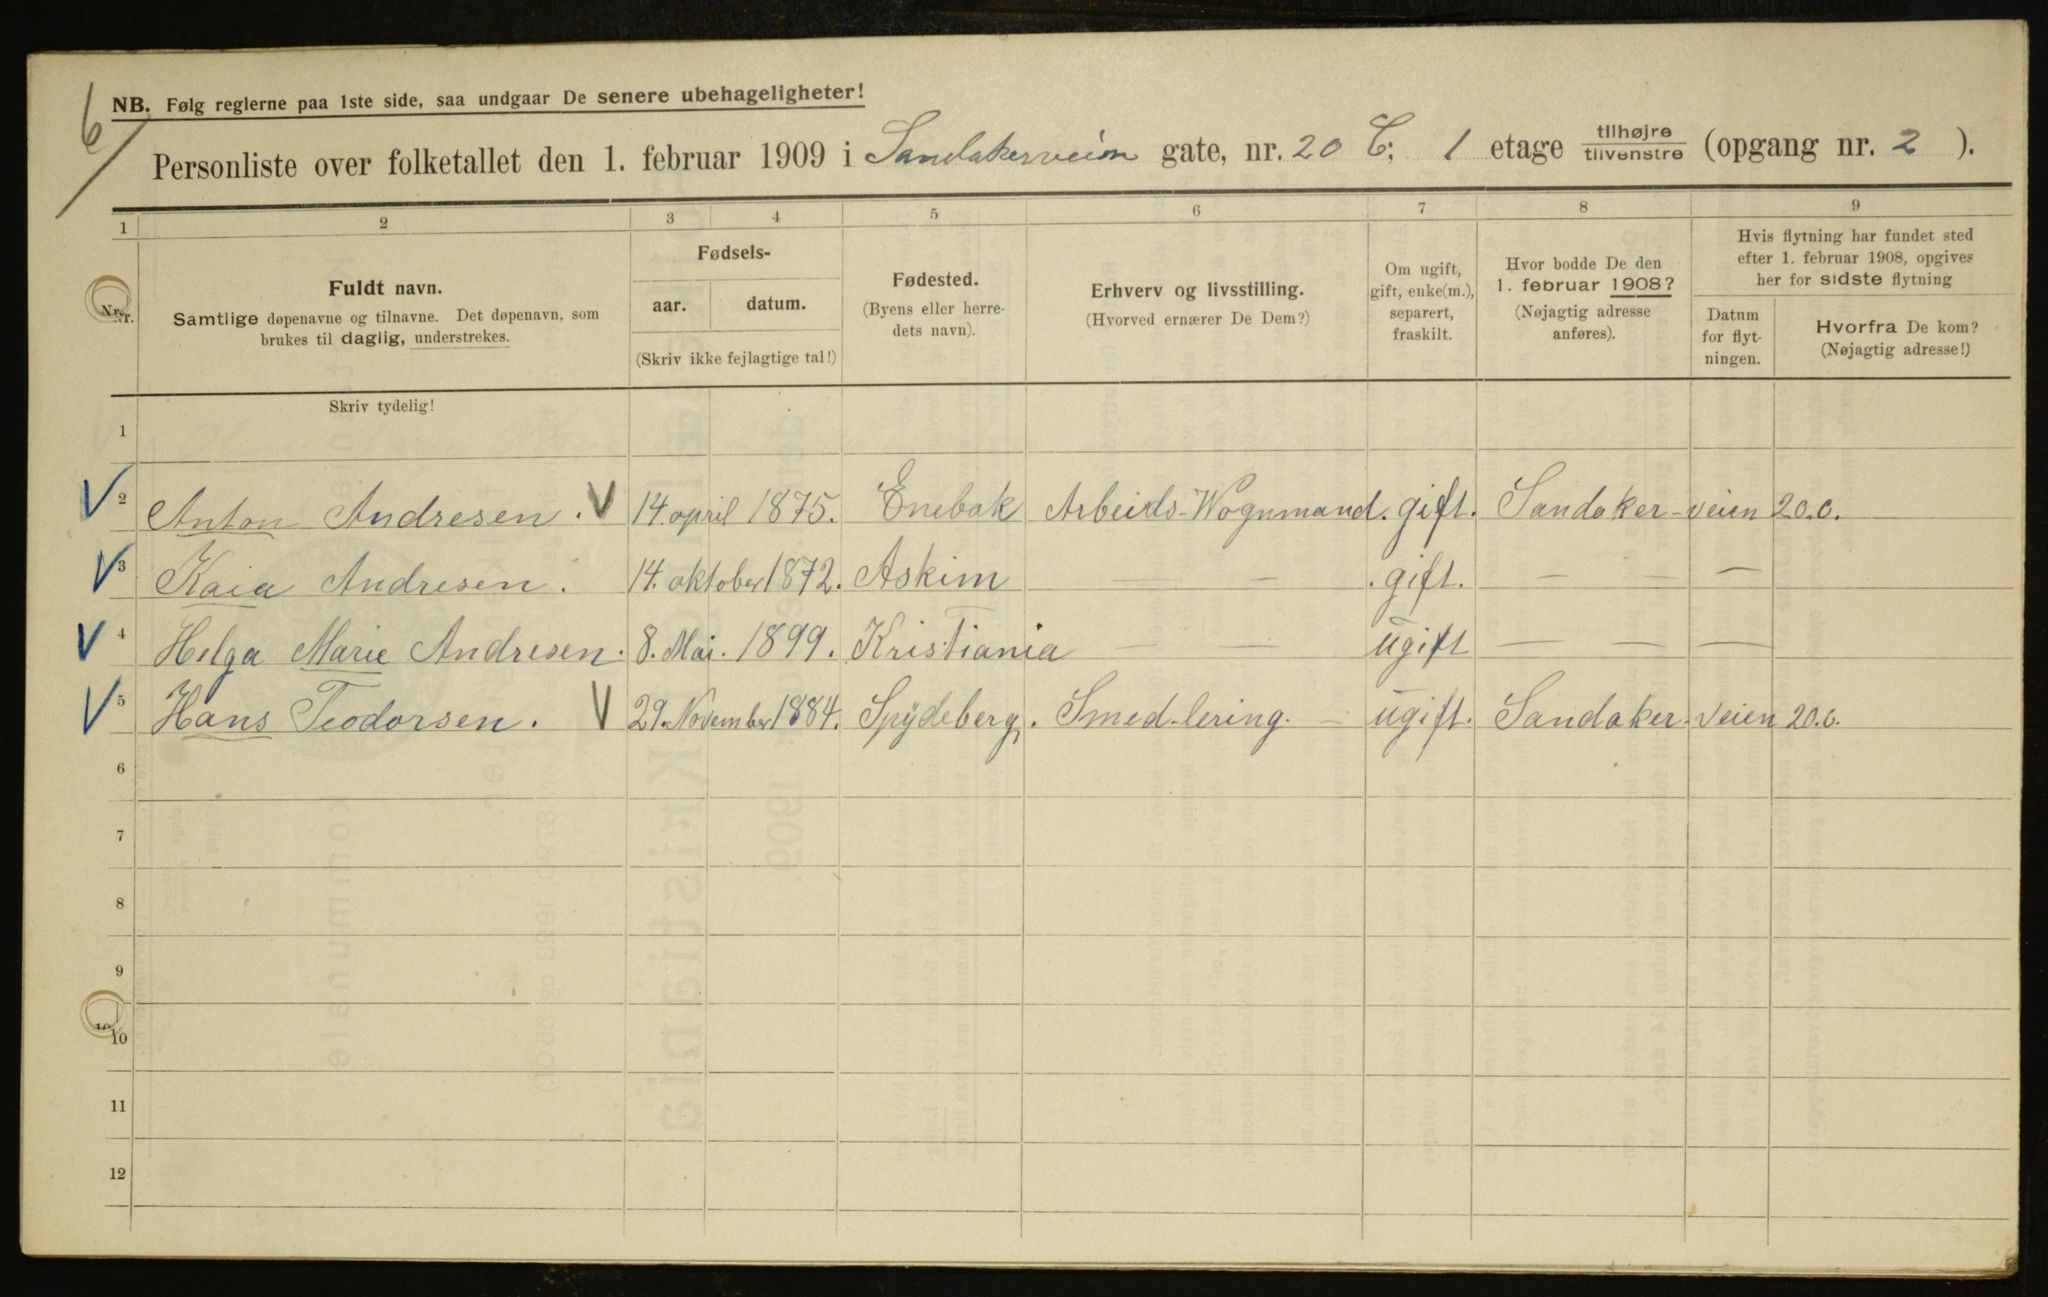 6/
NB. Følg reglerne paa 1ste side, saa undgaar De senere ubehageligheter!
Personliste over folketallet den 1. februar 1909 i Sandakerveien gate, nr. 20 C; 1 etage tilhøjre/tilvenstre (opgang nr. 2 ).
1 2 3 4 5 6 7 8 9
Nr. Fuldt navn. Samtlige døpenavne og tilnavne. Det døpenavn, som brukes til daglig, understrekes.
Fødsels- aar. datum. (Skriv ikke fejlagtige tal!)
Fødested. (Byens eller herredets navn).
Erhverv og livsstilling. (Hvorved ernærer De Dem?)
Om ugift, gift, enke(m.), separert, fraskilt.
Hvor bodde De den 1. februar 1908? (Nøjagtig adresse anføres).
Hvis flytning har fundet sted efter 1. februar 1908, opgives her for sidste flytning
Datum for flytningen.
Hvorfra De kom? (Nøjagtig adresse!)
Skriv tydelig!
1
2 Anton Andresen. V 14 april 1875. Enebak Arbeids-Wognmand. gift. Sandaker-veien 20.c.
3 Kaia Andresen. 14. oktober 1872. Askim — — . gift. — — —
4 Helga Marie Andresen. 8. Mai. 1899. Kristiania — — ugift — — —
5 Hans Teodorsen. V 29. November 1884. Spydeberg. Smed-lering. — ugift. Sandaker-veien 20.c.
6
7
8
9
10
11
12